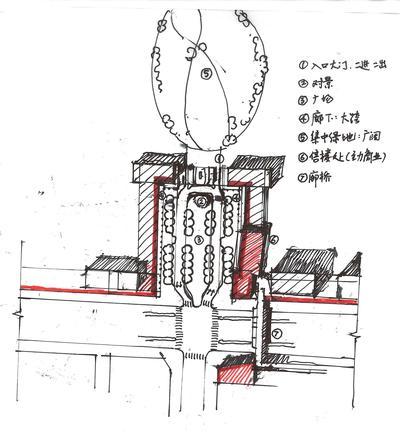 ① 入口大门、二进二出
② 对景
③ 广场
④ 廊下:大堂
⑤ 集中绿地:广阔
⑥ 售楼处(主动商业)
⑦ 廊桥
⑤
①
②
③
⑥
⑦